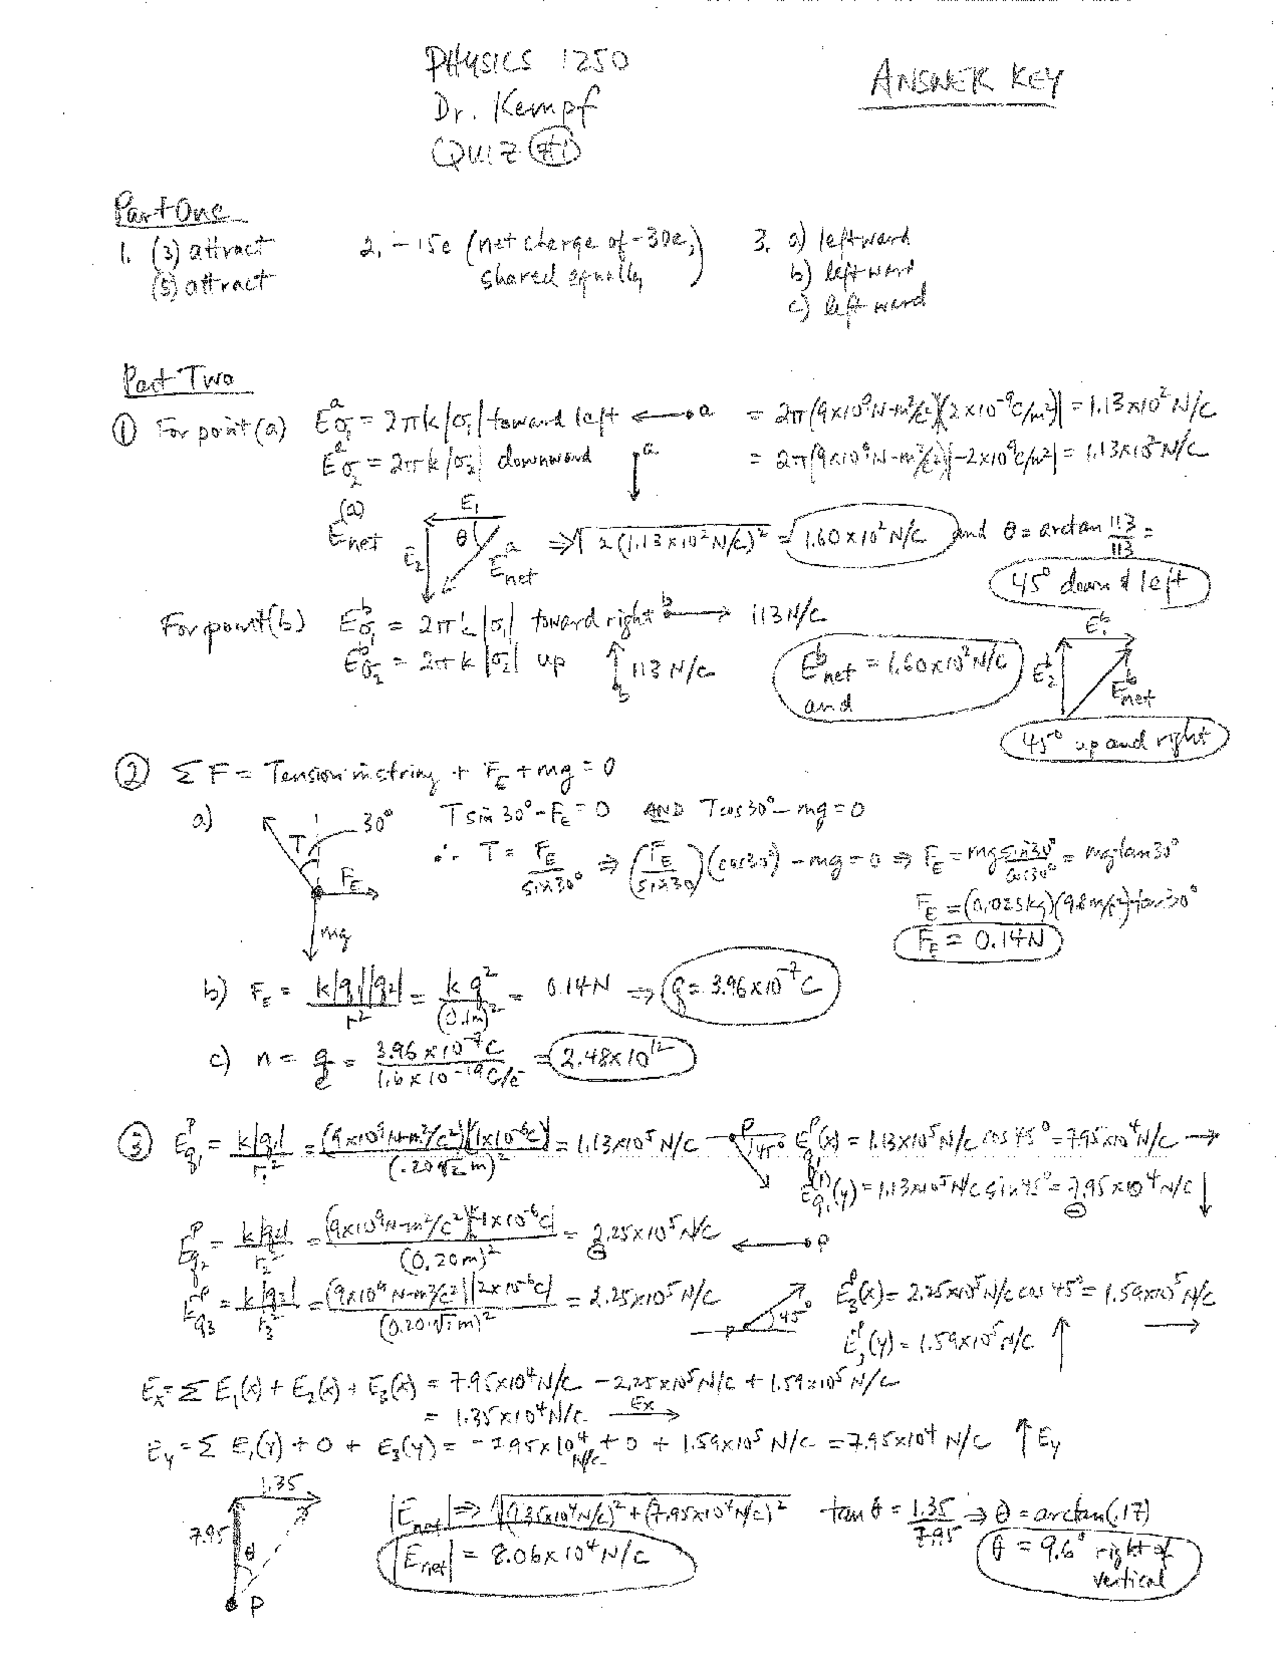 PHYSICS 1250
ANSWER KEY
Dr. Kempf
QUIZ #1
Part One
1. (3) attract
(5) attract
2. -15e (net charge of -30e, shared equally)
3. a) leftward
b) leftward
c) leftward
Part Two
① For point (a) E^a_σ1 = 2πk|σ1| toward left ← a = 2π(9x10^9 N-m²/C²)(2x10^-9 C/m²)| = 1.13x10² N/C
E^a_σ2 = 2πk|σ2| downward a = 2π(9x10^9 N-m²/C²)|-2x10^-9 C/m²| = 1.13x10² N/C
E^(a)_net E1 θ E2 E^a_net ⇒ √2(1.13x10² N/C)² = 1.60x10² N/C and θ = arctan 113/113 =
45° down & left
For point (b) E^b_σ1 = 2πk|σ1| toward right b → 113 N/C
E^b_σ2 = 2πk|σ2| up ↑ b 113 N/C
E^b_net = 1.60x10² N/C and
E^b_1 E^b_2 E^b_net
45° up and right
② ΣF = Tension in string + F_E + mg = 0
a) T 30° F_E mg
T sin 30° - F_E = 0 AND T cos 30° - mg = 0
∴ T = F_E/sin 30° ⇒ (F_E/sin 30)(cos 30°) - mg = 0 ⇒ F_E = mg sin 30°/cos 30° = mg tan 30°
F_E = (0.025kg)(9.8 m/s²) tan 30°
F_E = 0.14N
b) F_E = k|q1||q2|/r² = kq²/(0.1m)² = 0.14N ⇒ q = 3.96x10^-7 C
c) n = q/e = 3.96x10^-7 C/1.6x10^-19 C/e = 2.48x10^12
③ E^P_q1 = k|q1|/r1² = (9x10^9 N-m²/C²)|1x10^-6 C|/(.20√2 m)² = 1.13x10^5 N/C P 45° E^P_q1(x) = 1.13x10^5 N/C cos 45° = 7.95x10^4 N/C →
E^P_q1(y) = 1.13x10^5 N/C sin 45° = -7.95x10^4 N/C ↓
E^P_q2 = k|q2|/r2² = (9x10^9 N-m²/C²)|-1x10^-6 C|/(0.20m)² = -2.25x10^5 N/C ← P
E^P_q3 = k|q3|/r3² = (9x10^9 N-m²/C²)|2x10^-6 C|/(0.20·√2 m)² = 2.25x10^5 N/C P 45° E^P_3(x) = 2.25x10^5 N/C cos 45° = 1.59x10^5 N/C →
E^P_3(y) = 1.59x10^5 N/C ↑
Ex = Σ E1(x) + E2(x) + E3(x) = 7.95x10^4 N/C - 2.25x10^5 N/C + 1.59x10^5 N/C
= 1.35x10^4 N/C Ex →
Ey = Σ E1(y) + 0 + E3(y) = -7.95x10^4 N/C + 0 + 1.59x10^5 N/C = 7.95x10^4 N/C ↑ Ey
1.35
7.95 θ P
|Enet| ⇒ √(1.35x10^4 N/C)² + (7.95x10^4 N/C)² tan θ = 1.35/7.95 ⇒ θ = arctan(.17)
|Enet| = 8.06x10^4 N/C
θ = 9.6° right of vertical